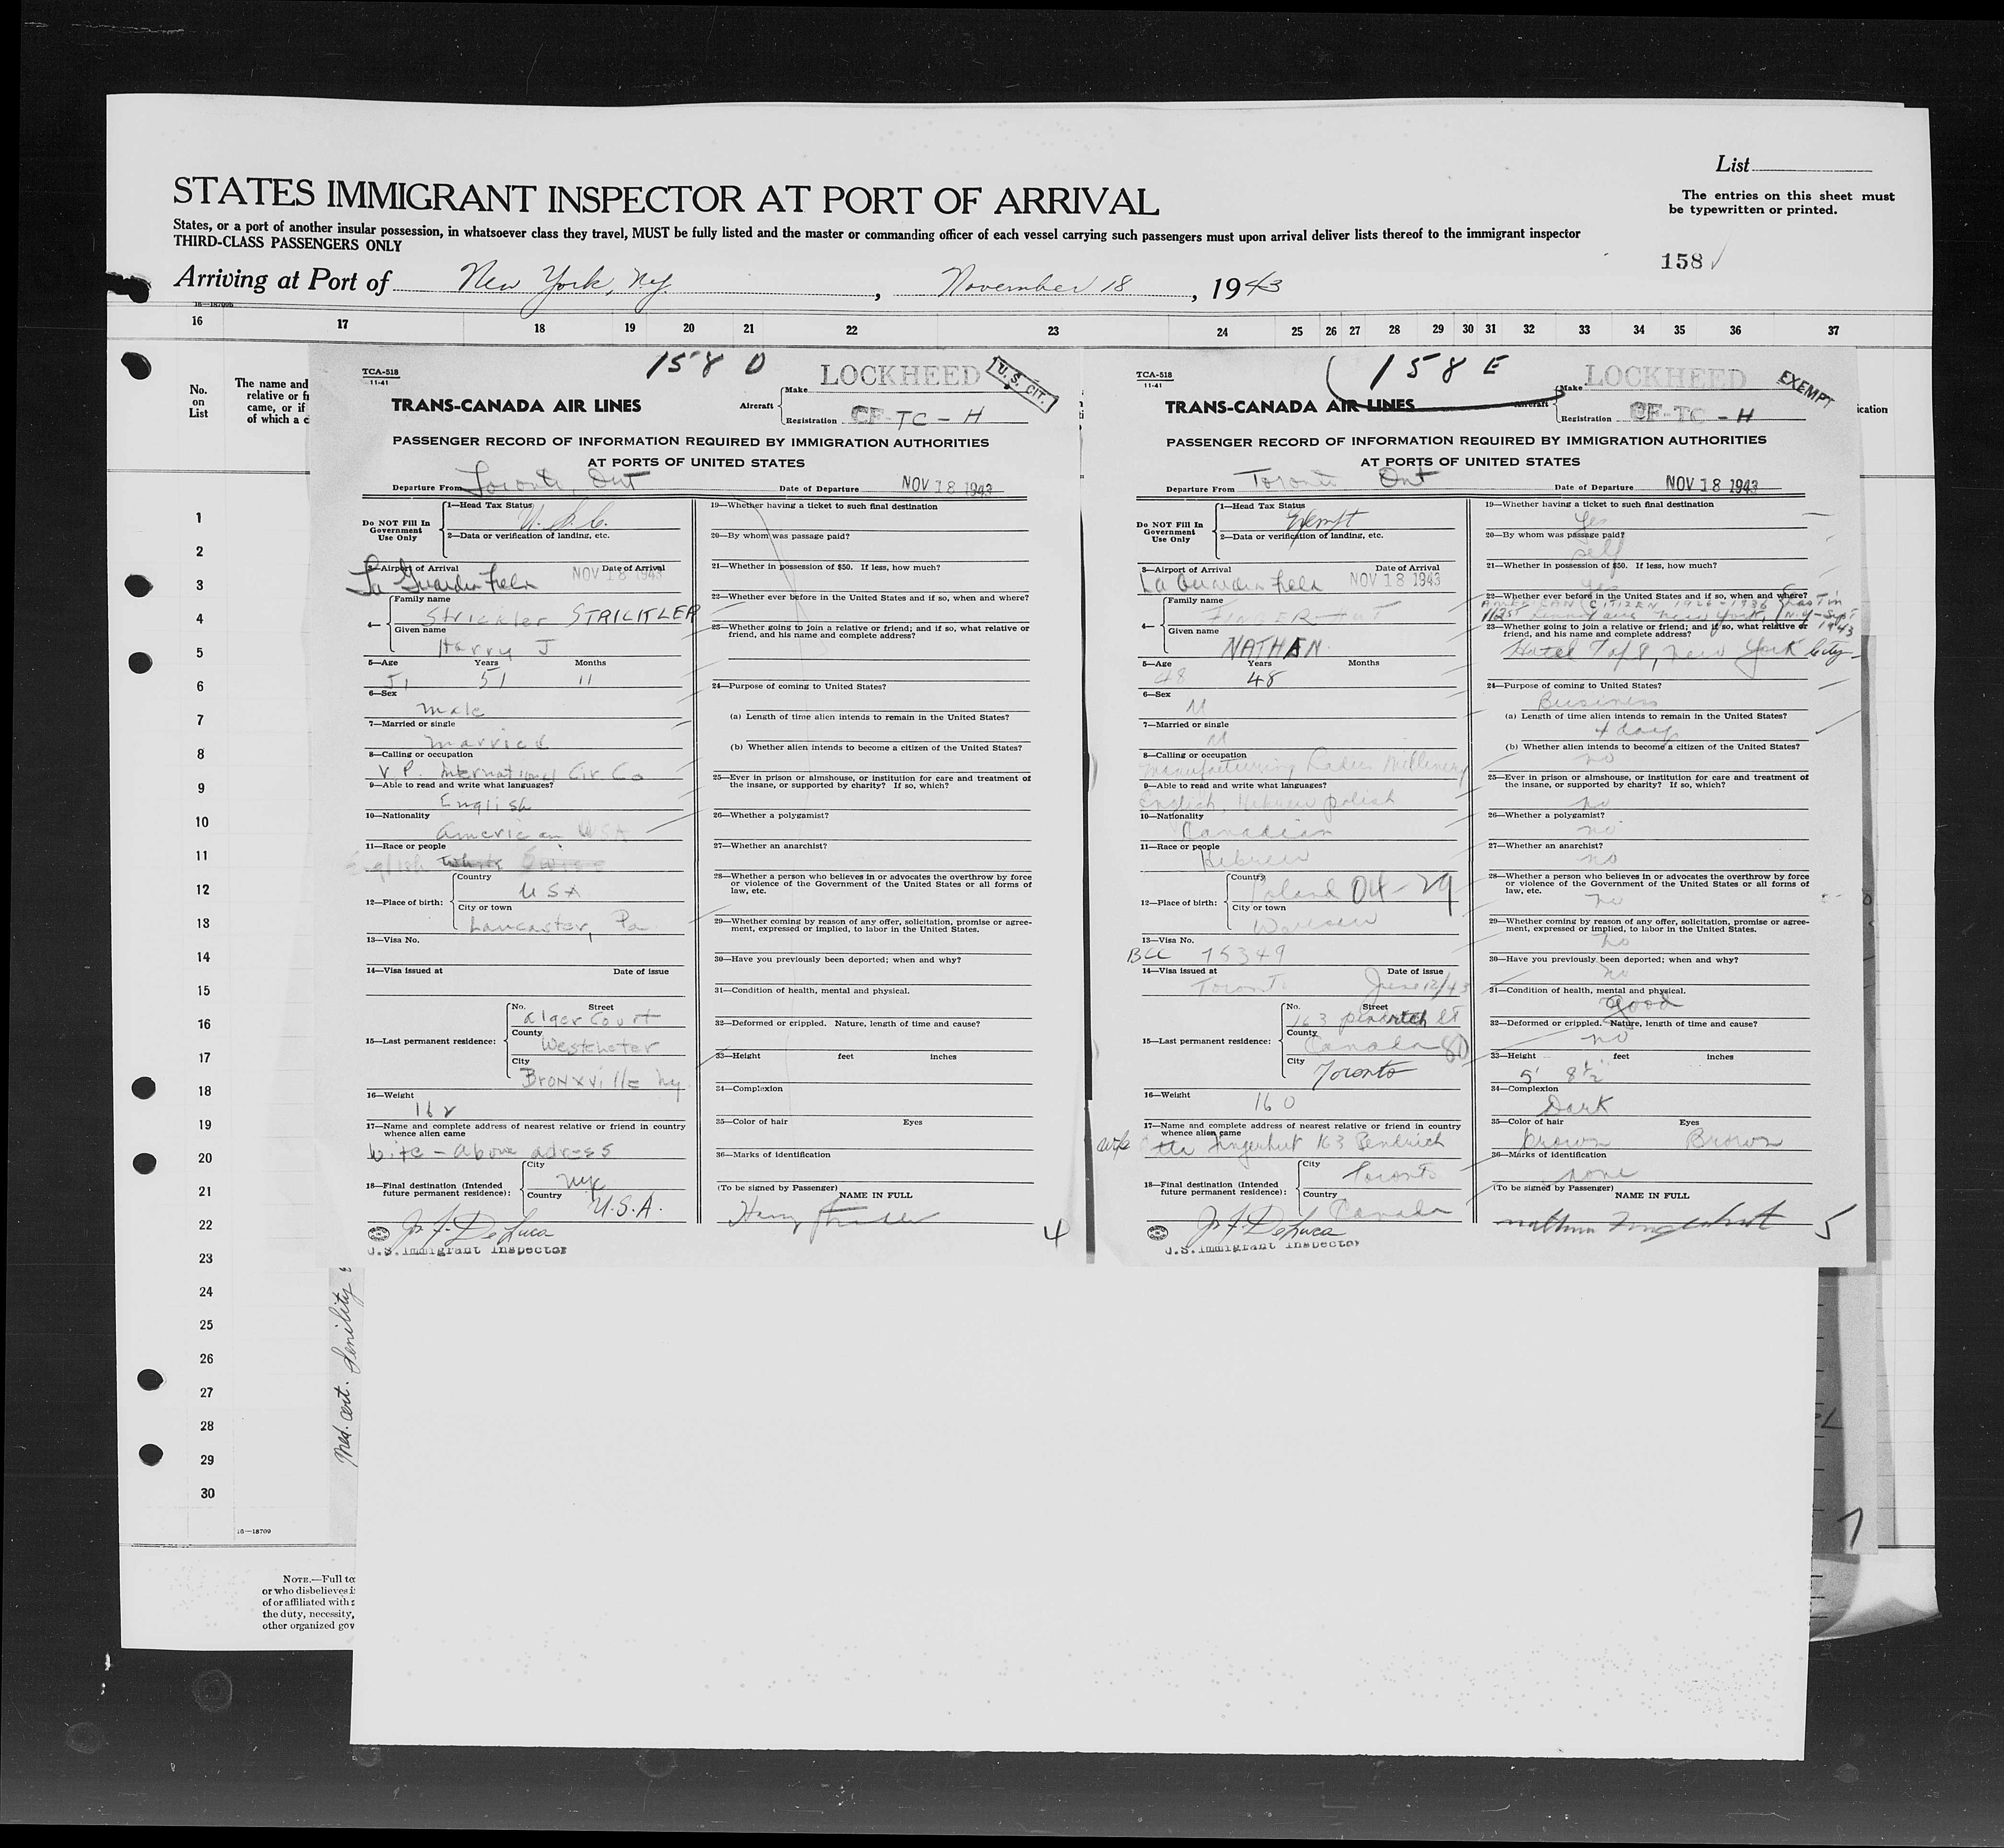 List
STATES IMMIGRANT INSPECTOR AT PORT OF ARRIVAL
The entries on this sheet must
be typewritten or printed.
States, or a port of another insular possession, in whatsoever class they travel, MUST be fully listed and the master or commanding officer of each vessel carrying such passengers must upon arrival deliver lists thereof to the immigrant inspector
THIRD-CLASS PASSENGERS ONLY
158
Arriving at Port of New York, Ny. , November 18 , 1943
16 17 18 19 20 21 22 23 24 25 26 27 28 29 30 31 32 33 34 35 36 37
No.
on
List
The name and
relative or fr
came, or if
of which a c
ication
1
2
3
4
5
6
7
8
9
10
11
12
13
14
15
16
17
18
19
20
21
22
23
24
25
26
27
28
29
30
16—18709
Med. cert. Senility
NOTE.—Full te
or who disbelieves i
of or affiliated with
the duty, necessity,
other organized gov
158 D
TCA-518
11-41
LOCKHEED
U.S. CIT.
TRANS-CANADA AIR LINES
Aircraft
Make
Registration CF-TC-H
PASSENGER RECORD OF INFORMATION REQUIRED BY IMMIGRATION AUTHORITIES
AT PORTS OF UNITED STATES
Departure From Toronto, Ont
Date of Departure NOV 18 1943
Do NOT Fill In
Government
Use Only
1—Head Tax Status U.S.C.
2—Data or verification of landing, etc.
3—Airport of Arrival Date of Arrival
La Guardia Field NOV 18 1943
4— Family name
Strickler STRICKLER
Given name
Harry J
5—Age Years Months
51 51 11
6—Sex
male
7—Married or single
married
8—Calling or occupation
V.P. International Cir. Co
9—Able to read and write what languages?
English
10—Nationality
American USA
11—Race or people
English White Swiss
12—Place of birth:
Country
USA
City or town
Lancaster, Pa
13—Visa No.
14—Visa issued at Date of issue
15—Last permanent residence:
No. Street
Alger Court
County
Westcheter
City
Bronxville ny
16—Weight
162
17—Name and complete address of nearest relative or friend in country
whence alien came
Wife - above adress
18—Final destination (Intended
future permanent residence):
City
nyc
Country
U.S.A.
J. F. DeLuca
U.S. Immigrant Inspector
19—Whether having a ticket to such final destination
20—By whom was passage paid?
21—Whether in possession of $50. If less, how much?
22—Whether ever before in the United States and if so, when and where?
23—Whether going to join a relative or friend; and if so, what relative or
friend, and his name and complete address?
24—Purpose of coming to United States?
(a) Length of time alien intends to remain in the United States?
(b) Whether alien intends to become a citizen of the United States?
25—Ever in prison or almshouse, or institution for care and treatment of
the insane, or supported by charity? If so, which?
26—Whether a polygamist?
27—Whether an anarchist?
28—Whether a person who believes in or advocates the overthrow by force
or violence of the Government of the United States or all forms of
law, etc.
29—Whether coming by reason of any offer, solicitation, promise or agree-
ment, expressed or implied, to labor in the United States.
30—Have you previously been deported; when and why?
31—Condition of health, mental and physical.
32—Deformed or crippled. Nature, length of time and cause?
33—Height feet inches
34—Complexion
35—Color of hair Eyes
36—Marks of identification
(To be signed by Passenger)
NAME IN FULL
Harry Strickler
4
158 E
TCA-518
11-41
LOCKHEED
EXEMPT
TRANS-CANADA AIR LINES
Aircraft
Make
Registration CF-TC-H
PASSENGER RECORD OF INFORMATION REQUIRED BY IMMIGRATION AUTHORITIES
AT PORTS OF UNITED STATES
Departure From Toronto Ont
Date of Departure NOV 18 1943
Do NOT Fill In
Government
Use Only
1—Head Tax Status Exempt
2—Data or verification of landing, etc.
3—Airport of Arrival Date of Arrival
La Guardia Field NOV 18 1943
4— Family name
FINGERHUT
Given name
NATHAN
5—Age Years Months
48 48
6—Sex
M
7—Married or single
M
8—Calling or occupation
Manufacturing Ladies Millinery
9—Able to read and write what languages?
English Hebrew polish
10—Nationality
Canadian
11—Race or people
Hebrew
12—Place of birth:
Country
Poland 04-29
City or town
Warsaw
13—Visa No.
BCC 75349
14—Visa issued at Date of issue
Toronto June 12/43
15—Last permanent residence:
No. Street
163 St
County
Canada 80
City
Toronto
16—Weight
160
17—Name and complete address of nearest relative or friend in country
whence alien came
wife Etta Fingerhut 163 Pendrich
18—Final destination (Intended
future permanent residence):
City
Toronto
Country
Canada
J. F. DeLuca
U.S. Immigrant Inspector
19—Whether having a ticket to such final destination
Yes
20—By whom was passage paid?
self
21—Whether in possession of $50. If less, how much?
Yes
22—Whether ever before in the United States and if so, when and where?
AMERICAN CITIZEN 1926-1936 Last in
New York, N.Y-Sept
1943
23—Whether going to join a relative or friend; and if so, what relative or
friend, and his name and complete address?
Hotel Taft, New York City
24—Purpose of coming to United States?
Business
(a) Length of time alien intends to remain in the United States?
4 days
(b) Whether alien intends to become a citizen of the United States?
no
25—Ever in prison or almshouse, or institution for care and treatment of
the insane, or supported by charity? If so, which?
no
26—Whether a polygamist?
no
27—Whether an anarchist?
no
28—Whether a person who believes in or advocates the overthrow by force
or violence of the Government of the United States or all forms of
law, etc.
no
29—Whether coming by reason of any offer, solicitation, promise or agree-
ment, expressed or implied, to labor in the United States.
no
30—Have you previously been deported; when and why?
no
31—Condition of health, mental and physical.
good
32—Deformed or crippled. Nature, length of time and cause?
no
33—Height feet inches
5' 8 1/2
34—Complexion
Dark
35—Color of hair Eyes
brown Brown
36—Marks of identification
none
(To be signed by Passenger)
NAME IN FULL
Nathan Fingerhut
5
7